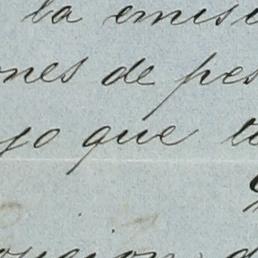 la emisi
ones de pes
jo que te